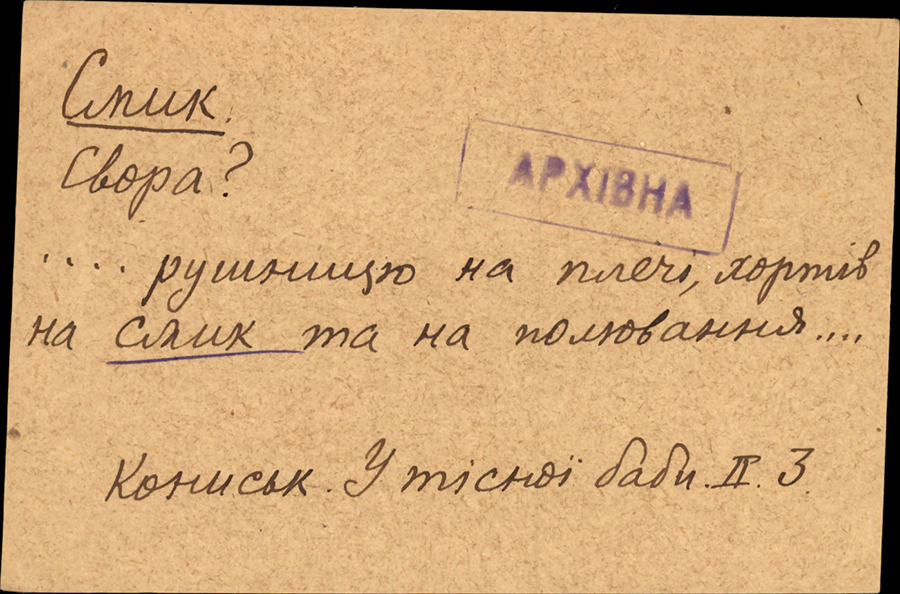 Смик.
Свора?
АРХІВНА
.... рушницю на плечі, хортів
на смик та на полювання....
Кониськ. У тісної баби. II. 3.